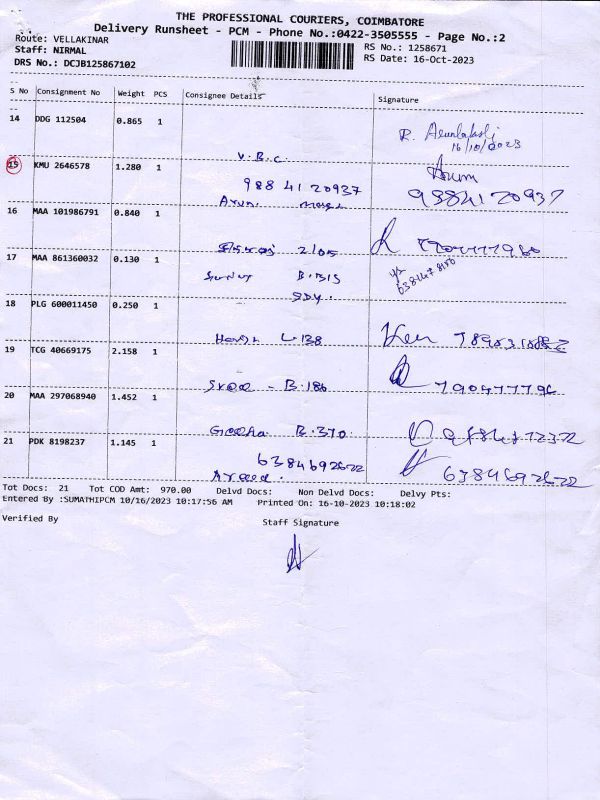 THE PROFESSIONAL COURIERS, COIMBATORE
Delivery Runsheet - PCM - Phone No.:0422-3505555 - Page No.:2
Route: VELLAKINAR
RS No.: 1258671
Staff: NIRMAL
RS Date: 16-Oct-2023
DRS No.: DCJB125867102
S No Consignment No Weight PCS Consignee Details Signature
14 DDG 112504 0.865 1
R.
16/10/2023
V.B.C.
15 KMU 2646578 1.280 1
988 41 20937 98841 20937
Arun
16 MAA 101986791 0.840 1
2105
17 MAA 861360032 0.130 1
B.
18 PLG 600011450 0.250 1
Harish L-138
19 TCG 40669175 2.158 1
B-186
20 MAA 297068940 1.452 1
Geetha B.370
21 PDK 8198237 1.145 1
6384692622 6384692622
Tot Docs: 21 Tot COD Amt: 970.00 Delvd Docs: Non Delvd Docs: Delvy Pts:
Entered By :SUMATHIPCM 10/16/2023 10:17:56 AM Printed On: 16-10-2023 10:18:02
Verified By Staff Signature